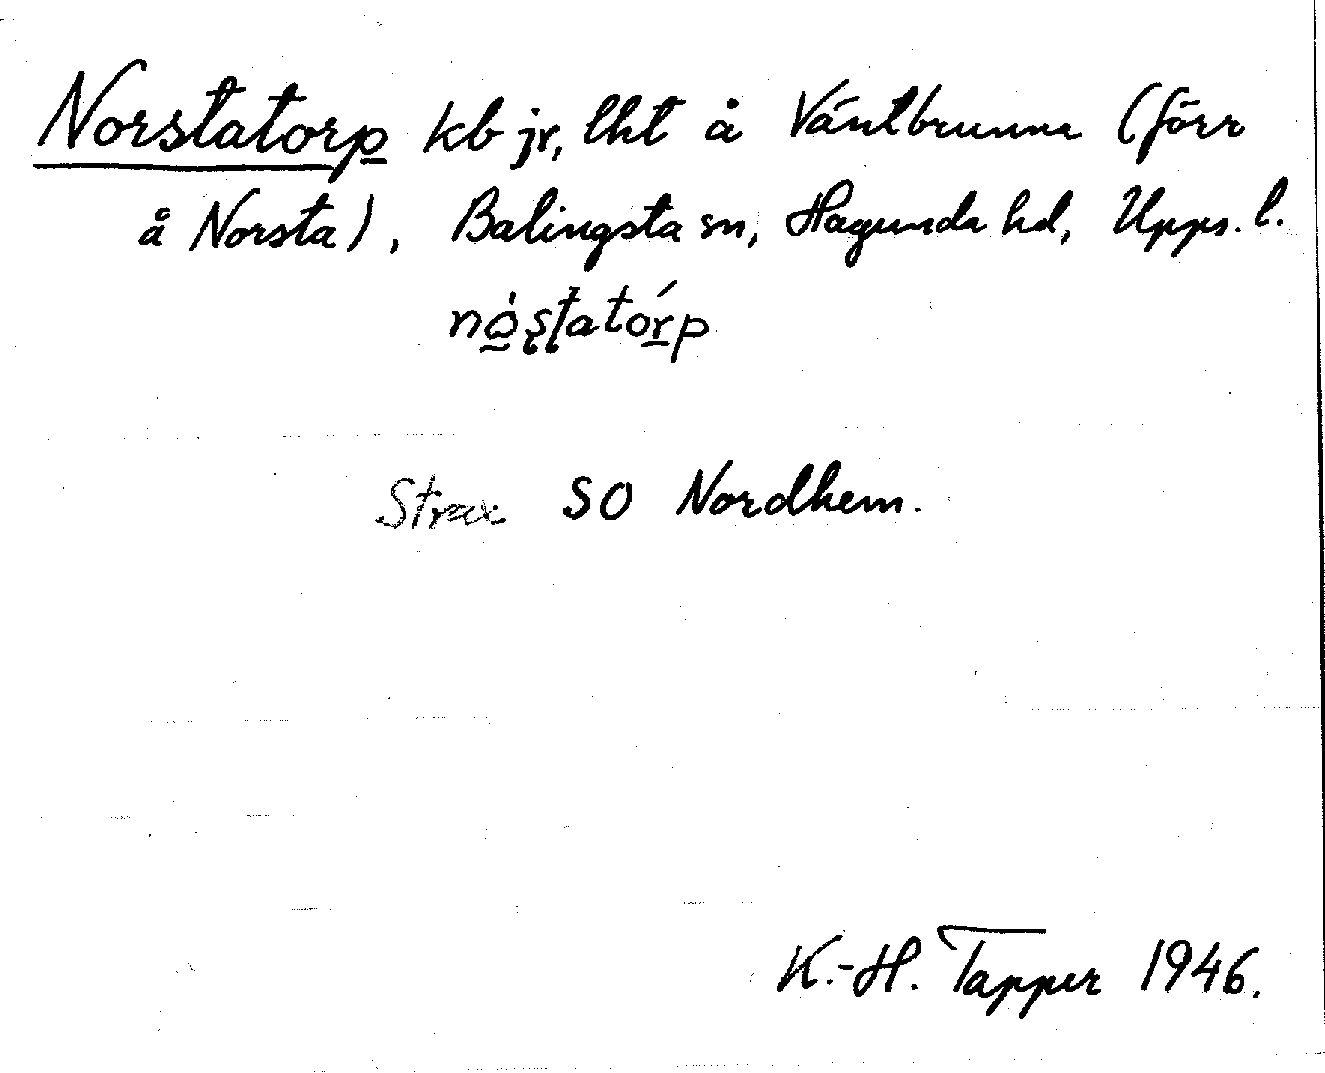 Norstatorp kb jr, lht å Väntbrunna (förr
å Norsta), Balingsta sn, Hagunda hd, Upps. l.
nǫ̀ştatórp
Strax SO Nordhem.
K.-H. Tapper 1946.